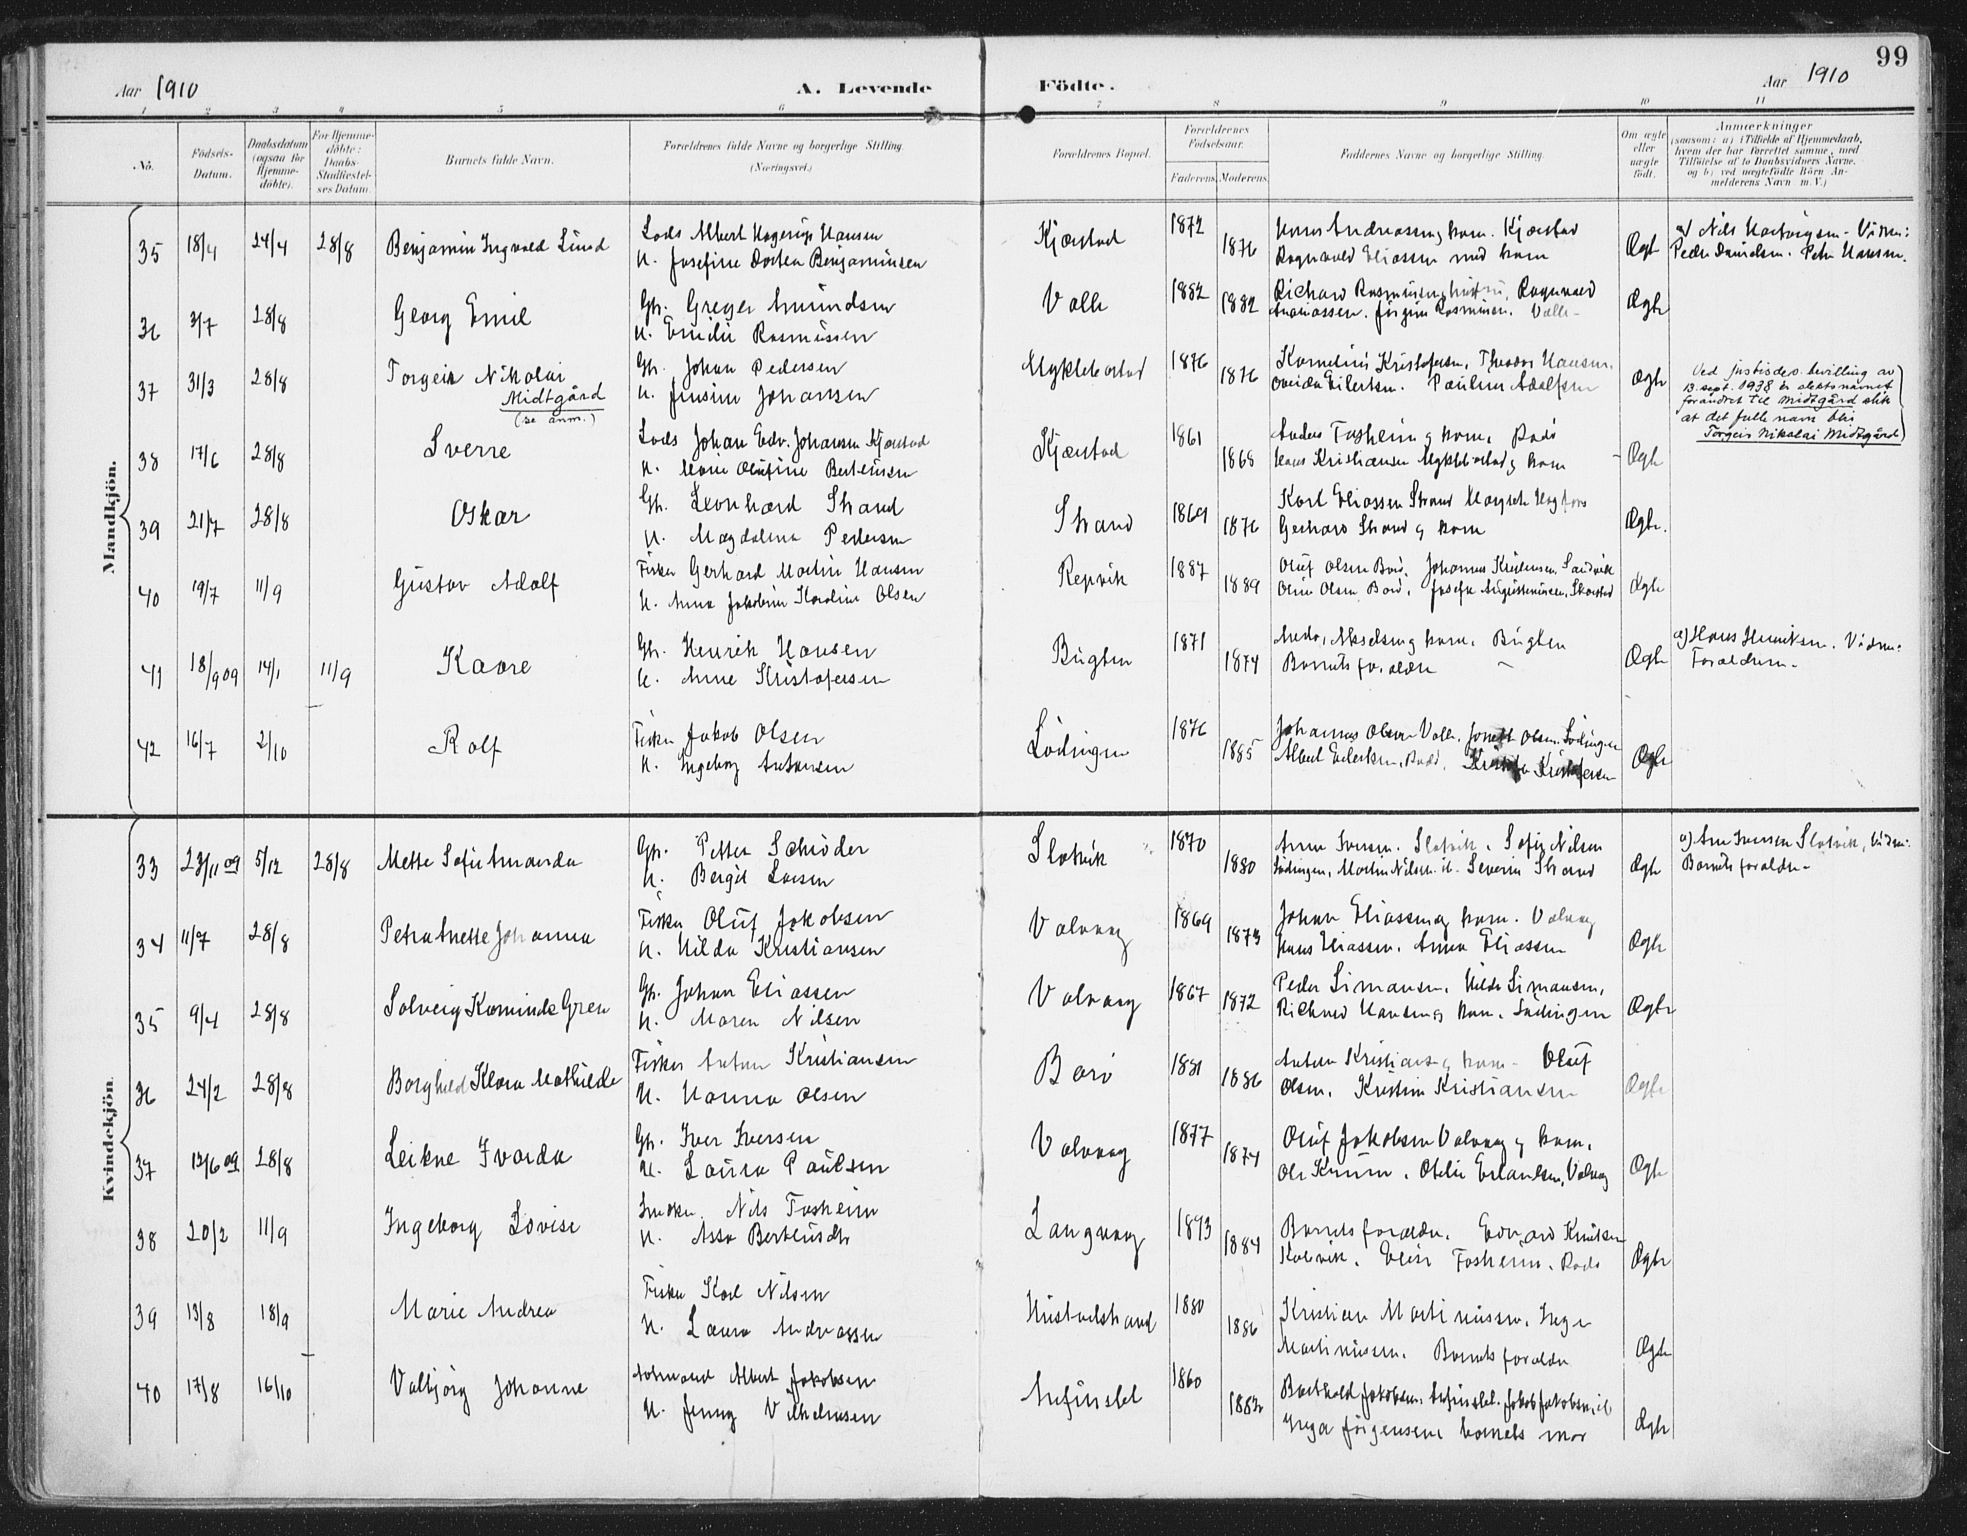 99
Aar 1910
A. Levende
Födte.
Aar 1910
1 2 3 4 5 6 7 8 9 10 11
No.
Födsels-
Datum.
Daabsdatum
(ogsaa for
Hjemme-
döbte).
For Hjemme-
döbte:
Daabs-
Stadfestel-
ses Datum.
Barnets fulde Navn.
Forældrenes fulde Navne og borgerlige Stilling
(Næringsvei.)
Forældrenes Bopæl.
Forældrenes
Födselsaar.
Faderens. Moderens.
Faddernes Navne og borgerlige Stilling.
Om ægte
eller
uægte
födt.
Anmærkninger
(saasom: a) i Tilfælde af Hjemmedaab,
hvem der har forrettet samme, med
Tilföielse af to Daabsvidners Navne,
og b) ved uægtefödte Börn An-
melderens Navn m.V.)
Mandkjön.
35 18/4 24/4 28/8 Benjamin Ingvald Lund
Lods Albert Hagerup Hansen
H. Josefine Dortea Benjaminsen
Kjærstad 1872 1876
Hans Andreassen og kone. Kjærstad
Ragnvald Eliassen med kone
Ægte
a) Nils Hartvigsen. Vidner:
Peder Danielsen. Peter Hansen.
36 3/7 28/8 Georg Emil
Gb. Greger Amundsen
H. Emilie Rasmussen
Valle 1882 1882
Richard Rasmussen, Ragnvald
Andreassen. Jörgine Rasmussen. Valle
Ægte
37 31/3 28/8 Torgeir Nikolai
Midtgård
(se anm.)
Gb. Johan Pedersen
H. Jensine Johansen
Myklebostad 1876 1876
Kornelius Kristofersen, Theodor Hansen,
Ovidia Eilertsen. Pauline Adolfsen
Ægte
Ved justisdep. bevilling av
13. sept. 1938 er slektsnavnet
forandret til Midtgård slik
at det fulle navn blir
Torgeir Nikolai Midtgård
38 17/6 28/8 Sverre
Lods Johan Edv. Johansen Kjærstad
H. Marie Olufine Berteusen
Kjærstad 1861 1868
Anders Fosheim og kone. Rads
Hans Kristiansen Myklebostad og kone
Ægte
39 21/7 28/8 Oskar
Gb. Leonhard Strand
H. Magdalena Pedersen
Strand 1869 1876
Karl Eliassen Strand Margrete
Gerhard Strand og kone
Ægte.
40 19/7 11/9 Gustav Adolf
Fisker Gerhard Martin Hansen
H. Anna Jakobine Karoline Olsen
Repvik 1887 1889
Oluf Olsen Barö. Johannes Kristensen. Sandvik
Oline Olsen Barö. Josefa Augustinusen. Skarstad
Ægte
41 18/9 09 14/1 11/9 Kaare
Gb. Henrik Hansen
H. Anne Kristofersen
Bugten 1871 1874
Andr. Akselsen og kone. Bugten
Barnets forældre
Ægte
a) Hans Henriksen. Vidner:
Forældrene.
42 16/7 2/10 Rolf
Fisker Jakob Olsen
H. Ingeborg Antonsen
Lödingen 1876 1885
Johannes Olsen Valle. Olsen. Lödingen
Albert Eilertsen. Rads. Kristofersen
Ægte
Kvindekjön.
33 23/11 09 5/12 28/8 Mette Sofie Amanda
Gb. Petter Schröder
H. Bergit Larsen
Slotvik 1870 1880
Arne Iversen. Slotvik. Sofie Nilsen
Lödingen, Martin Nilsen. Severin Strand
Ægte
a) Arne Iversen Slotvik, Vidner:
Barnets forældre
34 11/7 28/8 Petra Anette Johanna
Fisker Oluf Jakobsen
H. Hilda Kristiansen
Valvaag 1869 1873
Johan Eliassen og kone. Valvaag
Hans Eliassen. Anna Eliassen
Ægte
35 9/4 28/8 Solveig Kaminda Gren
Gb. Johan Eliassen
H. Maren Nilsen
Valvaag 1867 1872
Peder Simansen, Hilda Simansen,
Richard Hansen og kone. Lödingen
Ægte
36 24/2 28/8 Borghild Klara Mathilde
Fisker Anton Kristiansen
H. Hanna Olsen
Barö 1881 1886
Anton Kristiansen og kone. Oluf
Olsen. Kristine Kristiansen
Ægte
37 12/6 09 28/8 Leikne Ivarda
Gb. Iver Iversen
H. Laura Paulsen
Valvaag 1877 1874
Oluf Jakobsen Valvaag og kone.
Ole Knutsen. Otelie Erlandsen, Valvaag
Ægte
38 20/2 11/9 Ingeborg Lovise
Snedker Nils Fosheim
H. Assa Berteusdtr
Langvaag 1873 1884
Barnets forældre. Edvard Knutsen
Kalvik. Elise Fosheim. Rads
Ægte
39 13/8 18/9 Marie Andrea
Fisker Karl Nilsen
H. Laura Andreassen
Hustadstrand 1880 1886
Kristian Martinussen. Inga
Martinussen. Barnets forældre
Ægte
40 17/8 16/10 Valbjörg Johanne
Albert Jakobsen
H. Jenny Vilhelmsen
Arfinslet 1860 1882
Barthold Jakobsen. Arfinslet. Jakob Jakobsen
Inga Jörgensen barnets mor
Ægte